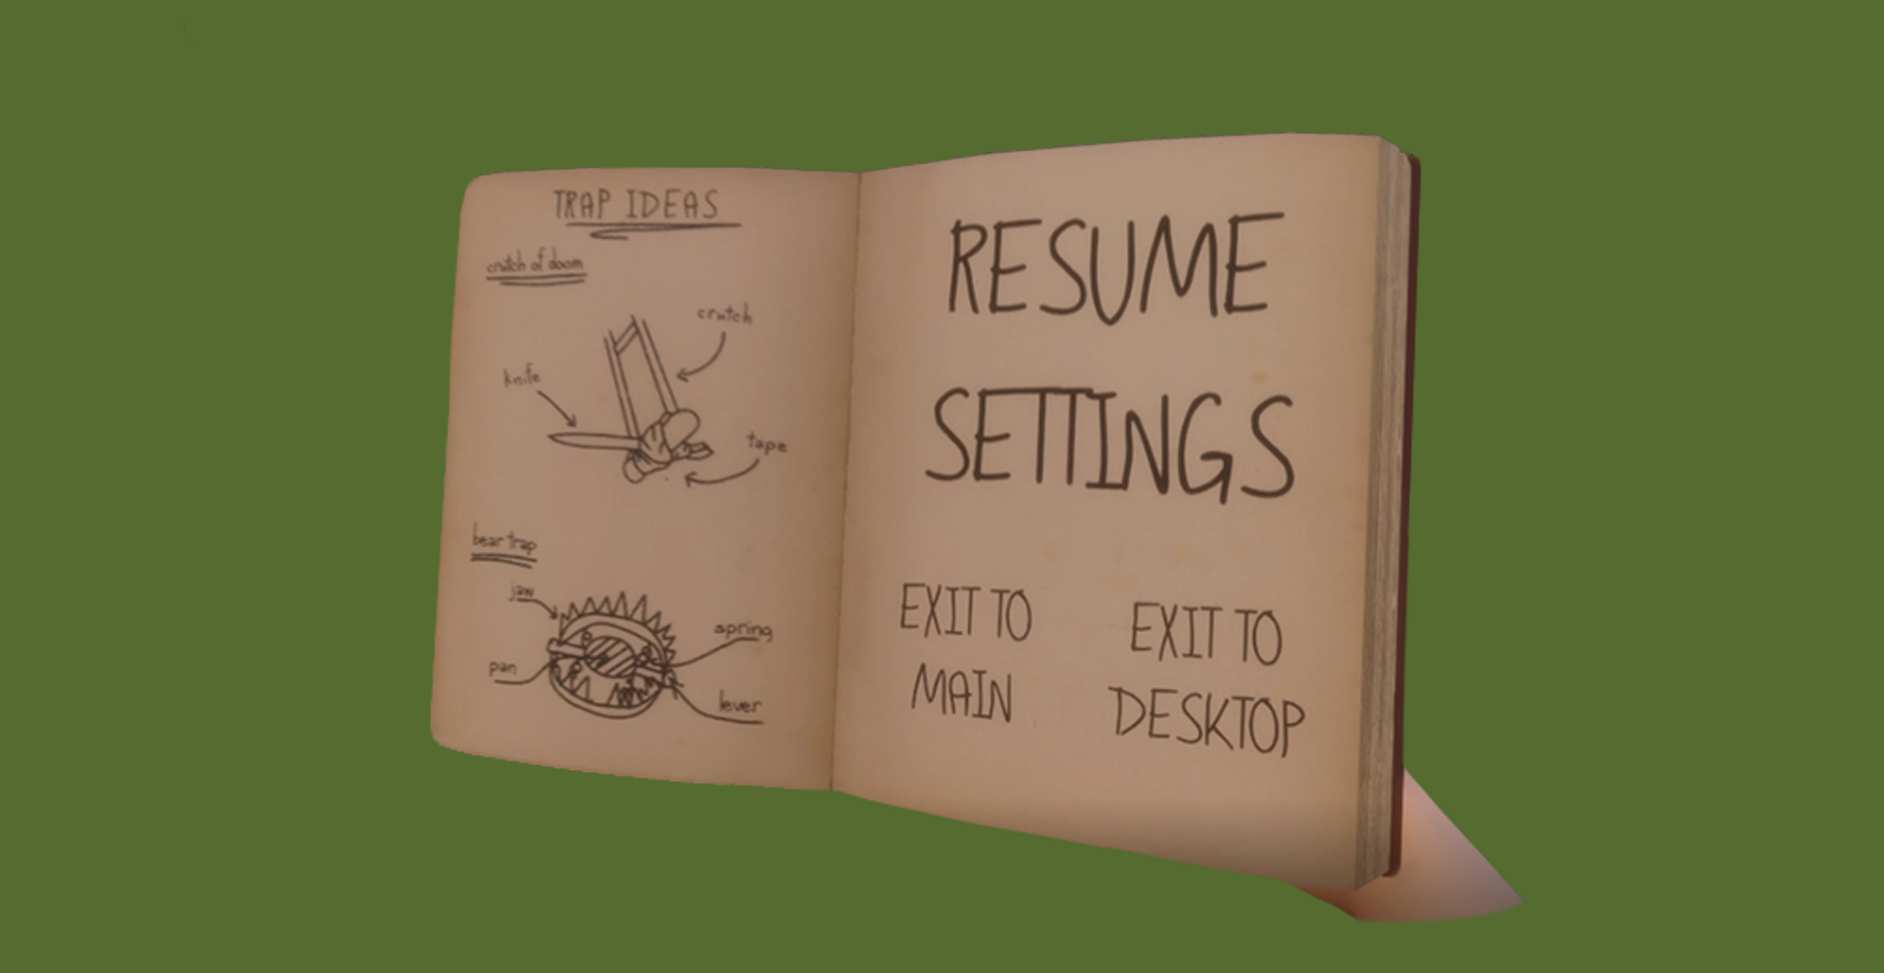 TRAP IDEAS
crutch of doom
crutch
knife
tape
bear trap
jaw
spring
pan
lever
RESUME
SETTINGS
EXIT TO
MAIN
EXIT TO
DESKTOP